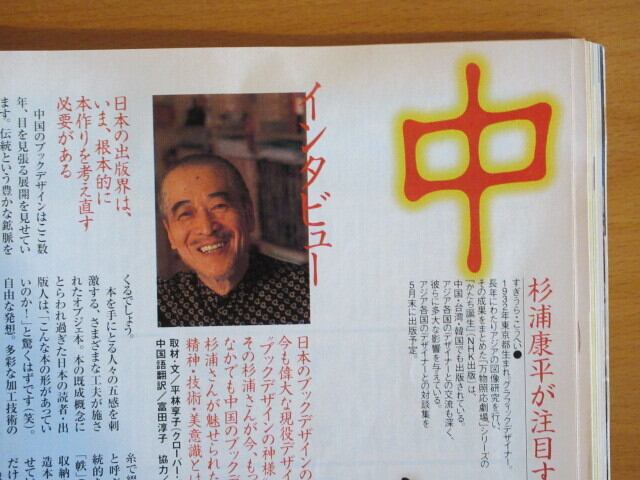 中
杉浦康平が注目す
すぎうら・こうへい●
1932年東京都生まれ。グラフィックデザイナー。
長年にわたりアジアの図像研究を行い、
その成果をまとめた「万物照応劇場」シリーズの
「かたち誕生」（NHK出版）は、
中国・台湾・韓国でも出版されている。
アジア各国のデザイナーとの交流も深く、
彼らに多大な影響を与えている。
アジア各国のデザイナーとの対談集を
5月末に出版予定。
インタビュー
日本のブックデザインの
今も偉大な現役デザイ
"ブックデザインの神様
その杉浦さんが今、もっ
なかでも中国のブックデ
杉浦さんが魅せられた
精神・技術・美意識とは
取材・文／平林享子（クローバー・
中国語翻訳／富田淳子 協力／
日本の出版界は、
いま、根本的に
本作りを考え直す
必要がある
中国のブックデザインはここ数
年、目を見張る展開を見せてい
ます。伝統という豊かな鉱脈を
くるでしょう。
本を手にとる人々の五感を刺
激する、さまざまな工夫が施さ
れたオブジェ本。本の既成概念に
とらわれ過ぎた日本の読者・出
版人は、「こんな本の形があってい
いのか！」と驚くはずです（笑）。
自由な発想。多彩な加工技術の
糸で綴
と呼ぶ
統的
「帙」
収納
造本
せて
だけ